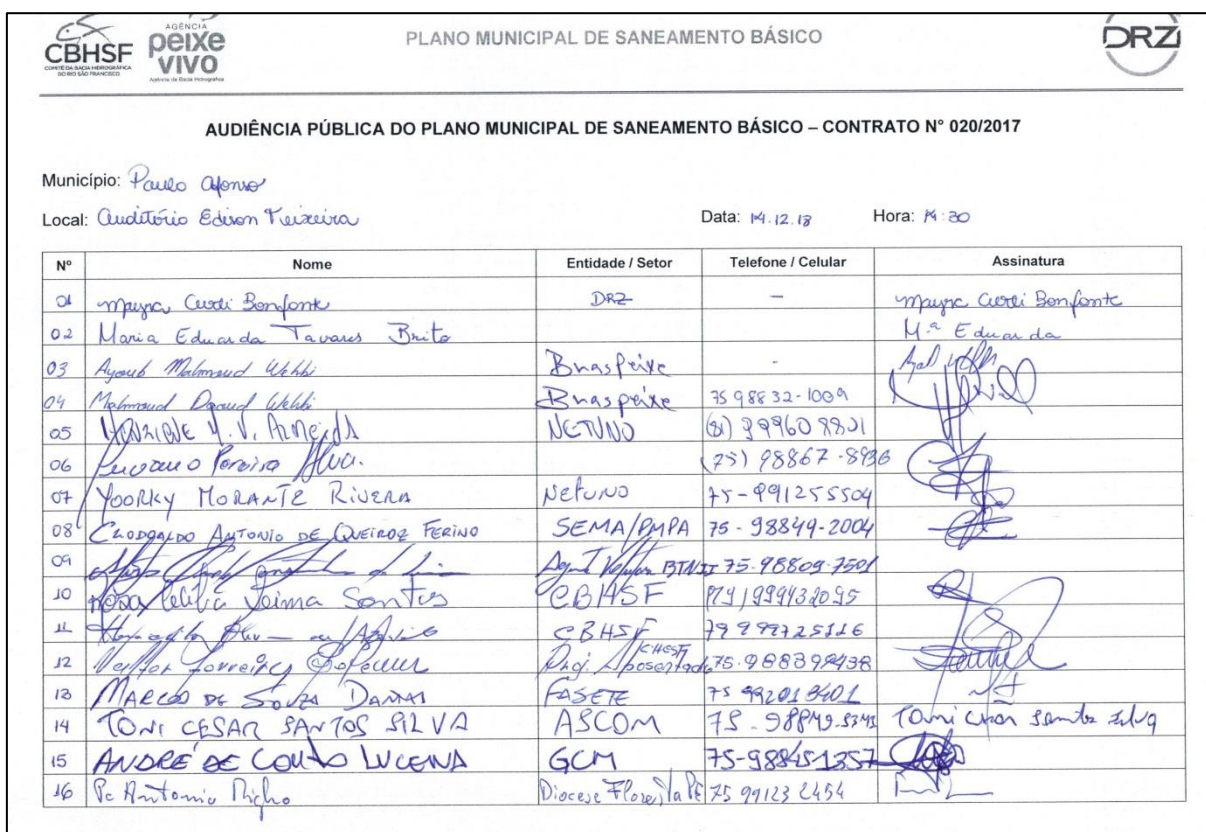 AGÊNCIA
CBHSF peixe vivo
COMITÊ DA BACIA HIDROGRÁFICA DO RIO SÃO FRANCISCO
Agência de Bacia Hidrográfica
PLANO MUNICIPAL DE SANEAMENTO BÁSICO
DRZ
AUDIÊNCIA PÚBLICA DO PLANO MUNICIPAL DE SANEAMENTO BÁSICO – CONTRATO N° 020/2017
Município: Paulo Afonso
Local: Auditório Edison Teixeira Data: 14.12.18 Hora: 14:30
N° Nome Entidade / Setor Telefone / Celular Assinatura
01 Mayra Curti Bonfonte DRZ - Mayra Curti Bonfonte
02 Maria Eduarda Tavares Brito M.ª Eduarda
03 Ayoub Mahmoud Wehbi Braspeixe -
04 Mahmoud Daoud Wehbi Braspeixe 75 98832-1009
05 V. Almeida NETUNO (81)
06 Luciano Pereira (75) 98867-8936
07 YOORKY MORANTE RIVERA Netuno 75-991255504
08 CLODOALDO ANTONIO DE QUEIROZ FERINO SEMA/PMPA 75-98849-2004
09 BTNII 75-98809-7501
10 Rosa Cecília Lima Santos CBHSF
11 CBHSF 79 999725116
12 CHESF 75-988399438
13 MARCOS DE SOUZA DANTAS FASETE
14 TONI CESAR SANTOS SILVA ASCOM Toni Cesar Santos Silva
15 ANDRÉ DE COUTO LUCENA GCM 75-98845-1357
16 Pe Antonio Diocese 75 99123 2454